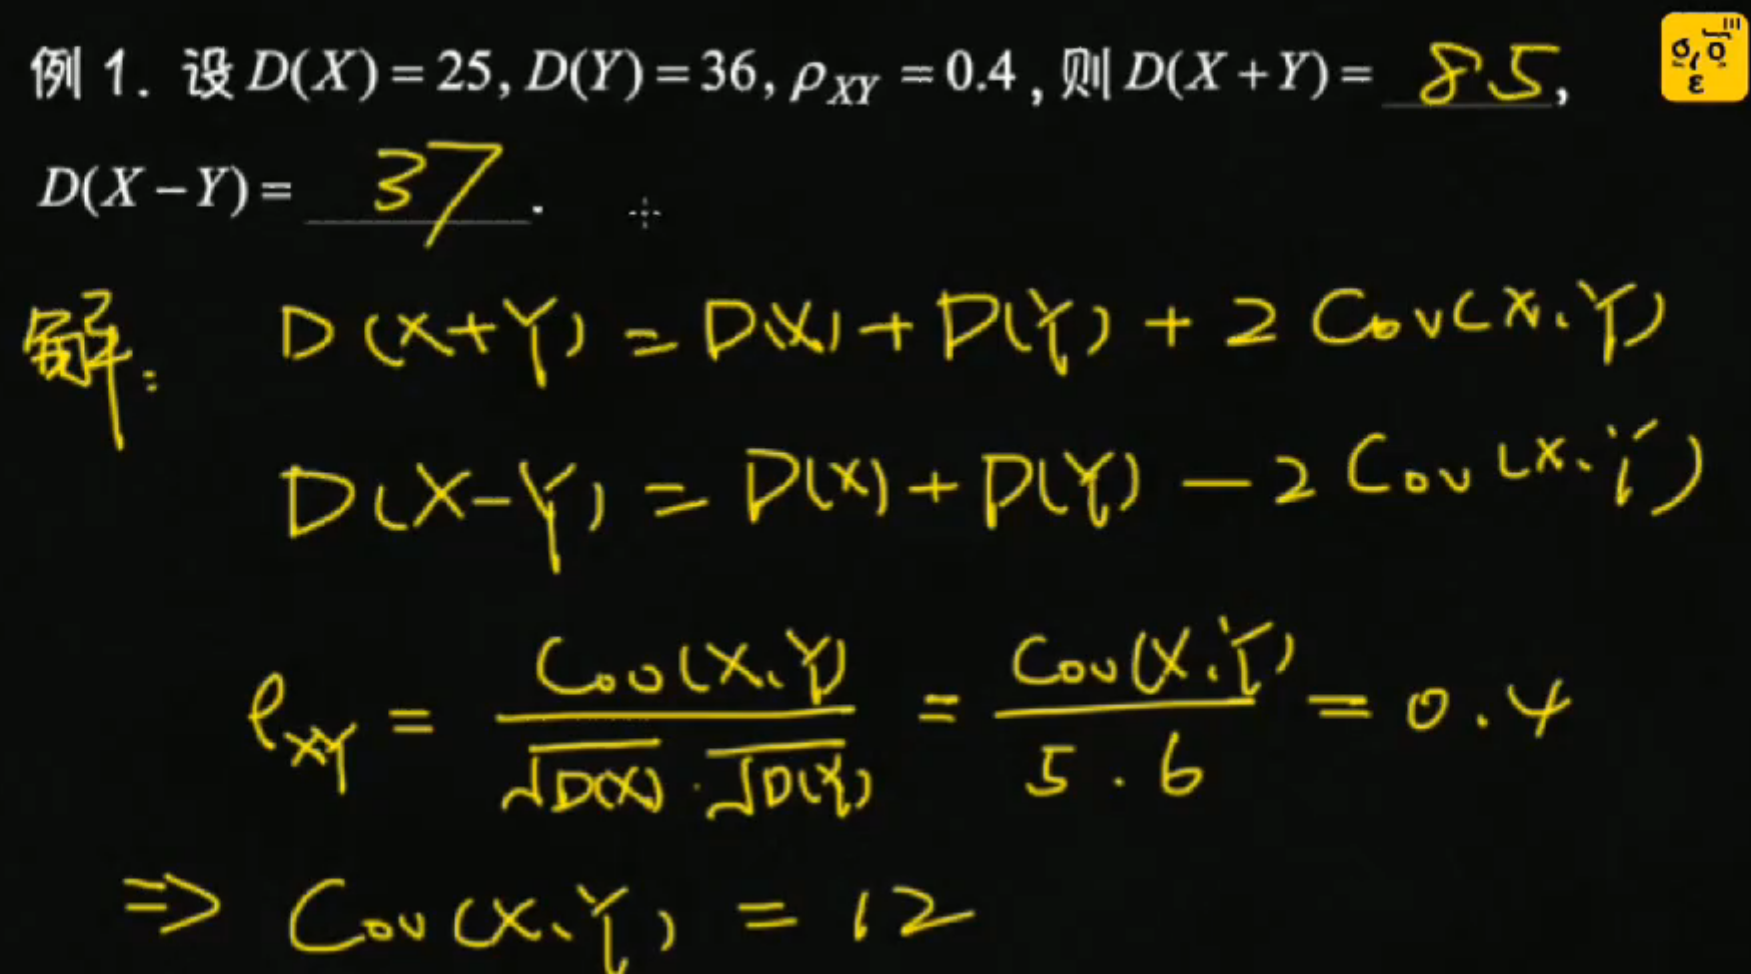 例 1. 设 D(X) = 25, D(Y) = 36, ρXY = 0.4 , 则 D(X + Y) = 85,
D(X − Y) = 37.
解: D(X+Y) = D(X) + D(Y) + 2 Cov(X,Y)
D(X−Y) = D(X) + D(Y) − 2 Cov(X,Y)
ρXY = Cov(X,Y) / √D(X) · √D(Y) = Cov(X,Y) / 5 · 6 = 0.4
⇒ Cov(X,Y) = 12